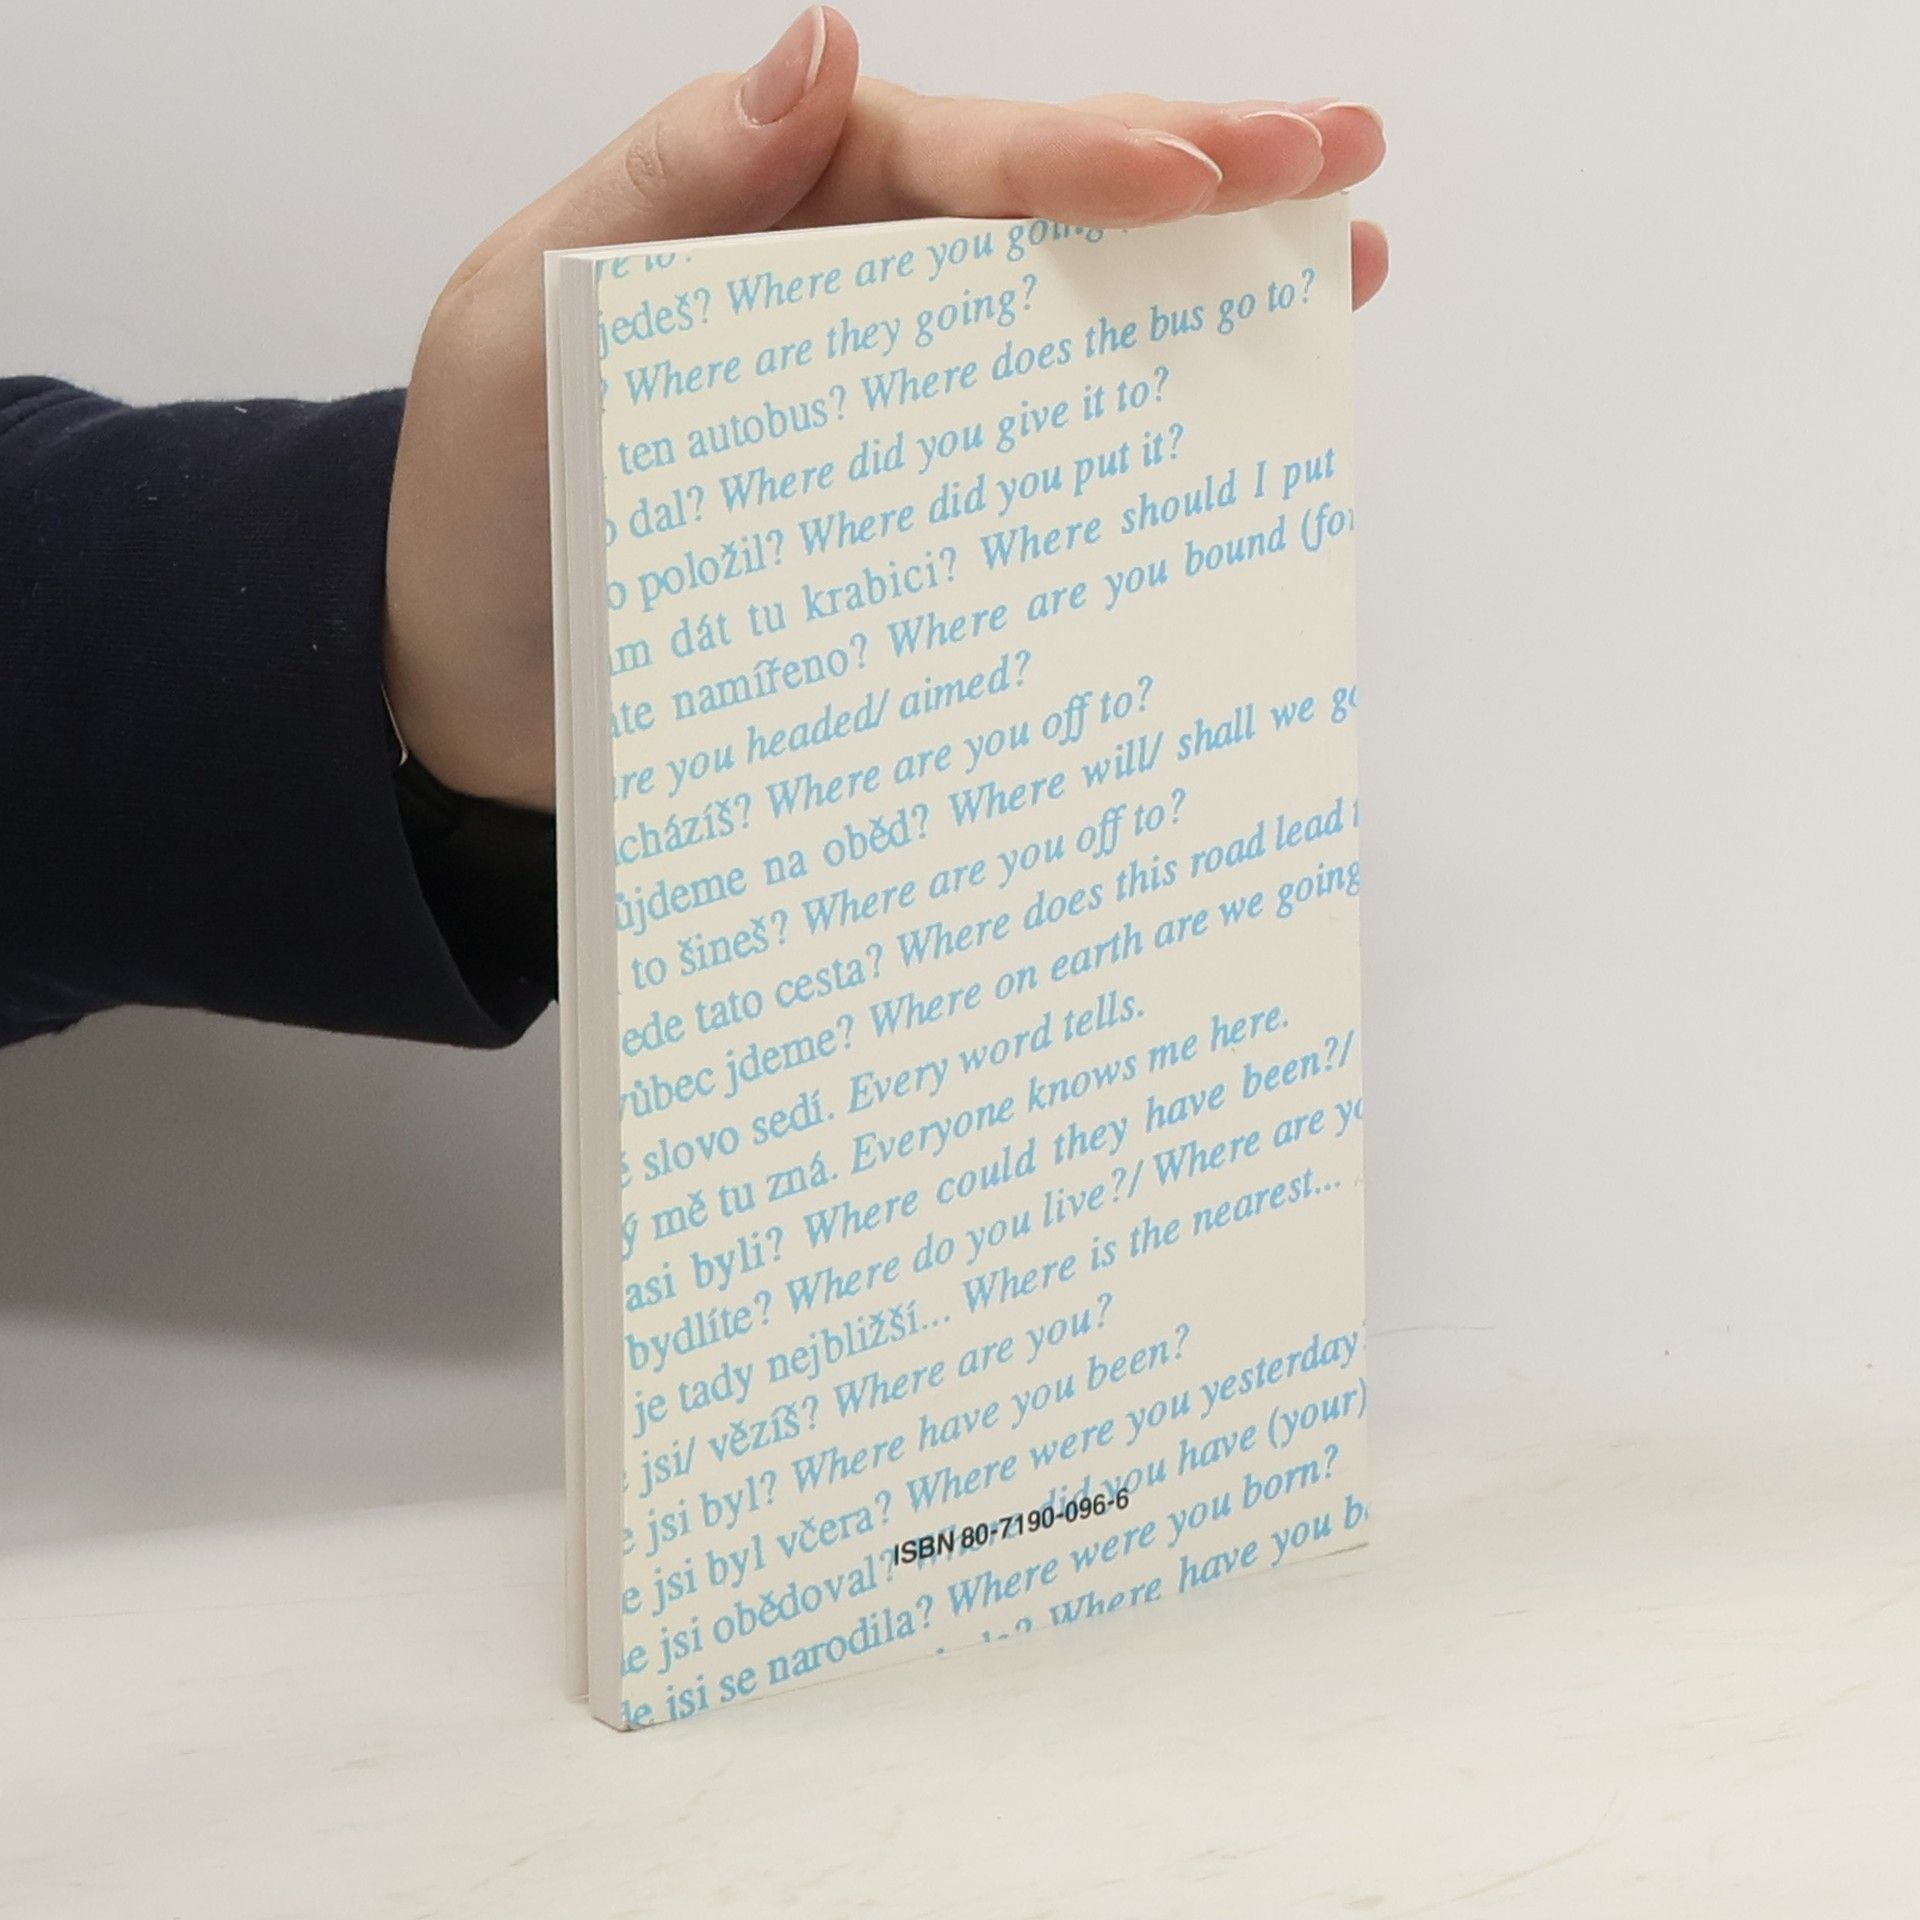 jedeš? Where are you going
? Where are they going?
ten autobus? Where does the bus go to?
dal? Where did you give it to?
položil? Where did you put it?
dát tu krabici? Where should I put
namířeno? Where are you bound (for
you headed/ aimed?
cházíš? Where are you off to?
ůjdeme na oběd? Where will/ shall we go
to šineš? Where are you off to?
ede tato cesta? Where does this road lead t
vůbec jdeme? Where on earth are we going
é slovo sedí. Every word tells.
ý mě tu zná. Everyone knows me here.
asi byli? Where could they have been?/
bydlíte? Where do you live?/ Where are yo
je tady nejbližší... Where is the nearest...
jsi/ vězíš? Where are you?
e jsi byl? Where have you been?
e jsi byl včera? Where were you yesterday
e jsi obědoval? Where did you have (your)
ISBN 80-7190-096-6
de jsi se narodila? Where were you born?
Where have you b